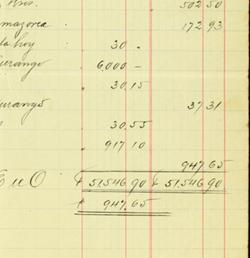 502 50
mazorca 172 93
la hoy 30 -
urango 6,000 -
30,15
urango 37 31
30,55
917 10
947 65
E u O $ 51,546 90 $ 51,546 90
$ 947,65